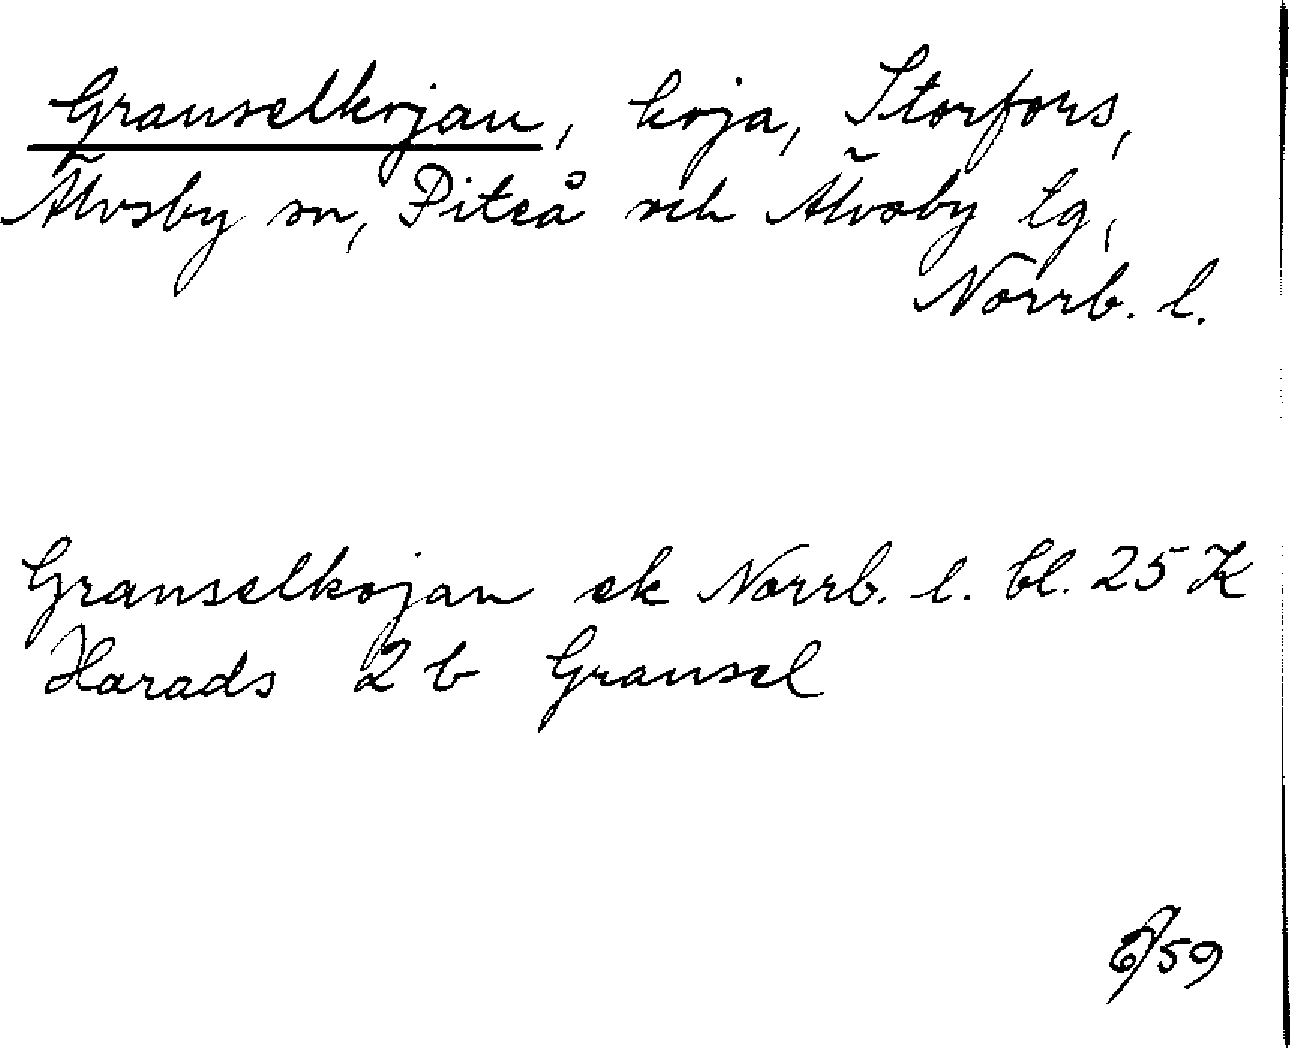 Granselkojan, koja, Storfors,
Älvsby sn, Piteå och Älvsby tg,
Norrb. l.
Granselkojan ek Norrb. l. bl. 25 K
Harads 2 b Gransel
6/59